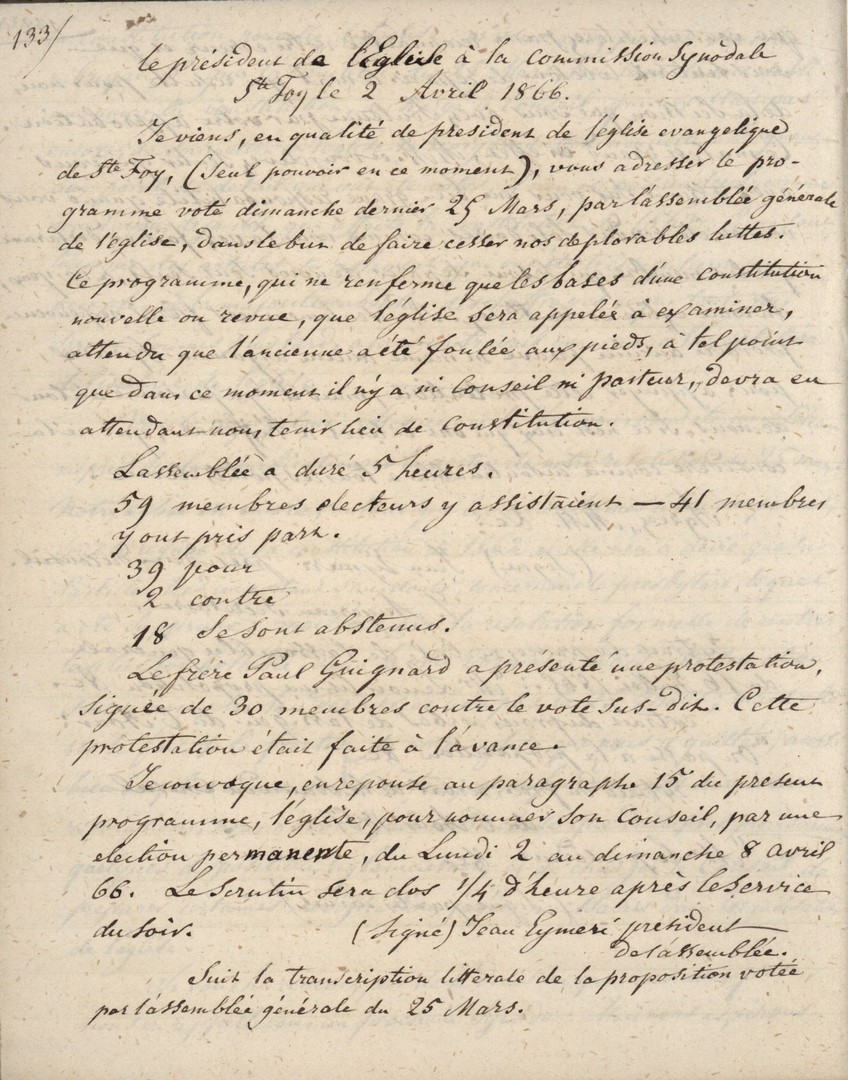 133/
le président de l'Eglise à la commission Synodale
Ste Foy le 2 Avril 1866.
Je viens, en qualité de president de l'église evangelique
de Ste Foy, (seul pouvoir en ce moment), vous adresser le pro-
gramme voté dimanche dernier 25 Mars, par l'assemblée générale
de l'église, dans le but de faire cesser nos deplorables luttes.
Ce programme, qui ne renferme que les bases d'une constitution
nouvelle ou revue, que l'église sera appelée à examiner,
attendu que l'ancienne a été foulée aux pieds, à tel point
que dans ce moment il n'y a ni Conseil ni pasteur, devra en
attendant nous tenir lieu de constitution.
L'assemblée a duré 5 heures.
59 membres electeurs y assistaient — 41 membres
y ont pris part.
39 pour
2 contre
18 se sont abstenus.
Le frère Paul Guignard a présenté une protestation,
signée de 30 membres contre le vote sus-dit. Cette
protestation était faite à l'avance.
Je convoque, en reponse au paragraphe 15 du present
programme, l'église, pour nommer son Conseil, par une
election permanente, du Lundi 2 au dimanche 8 avril
66. Le scrutin sera clos 1/4 d'heure après le service
du soir. (signé) Jean Eymeri president
de l'assemblée.
Suit la transcription litterale de la proposition votée
par l'assemblée générale du 25 Mars.